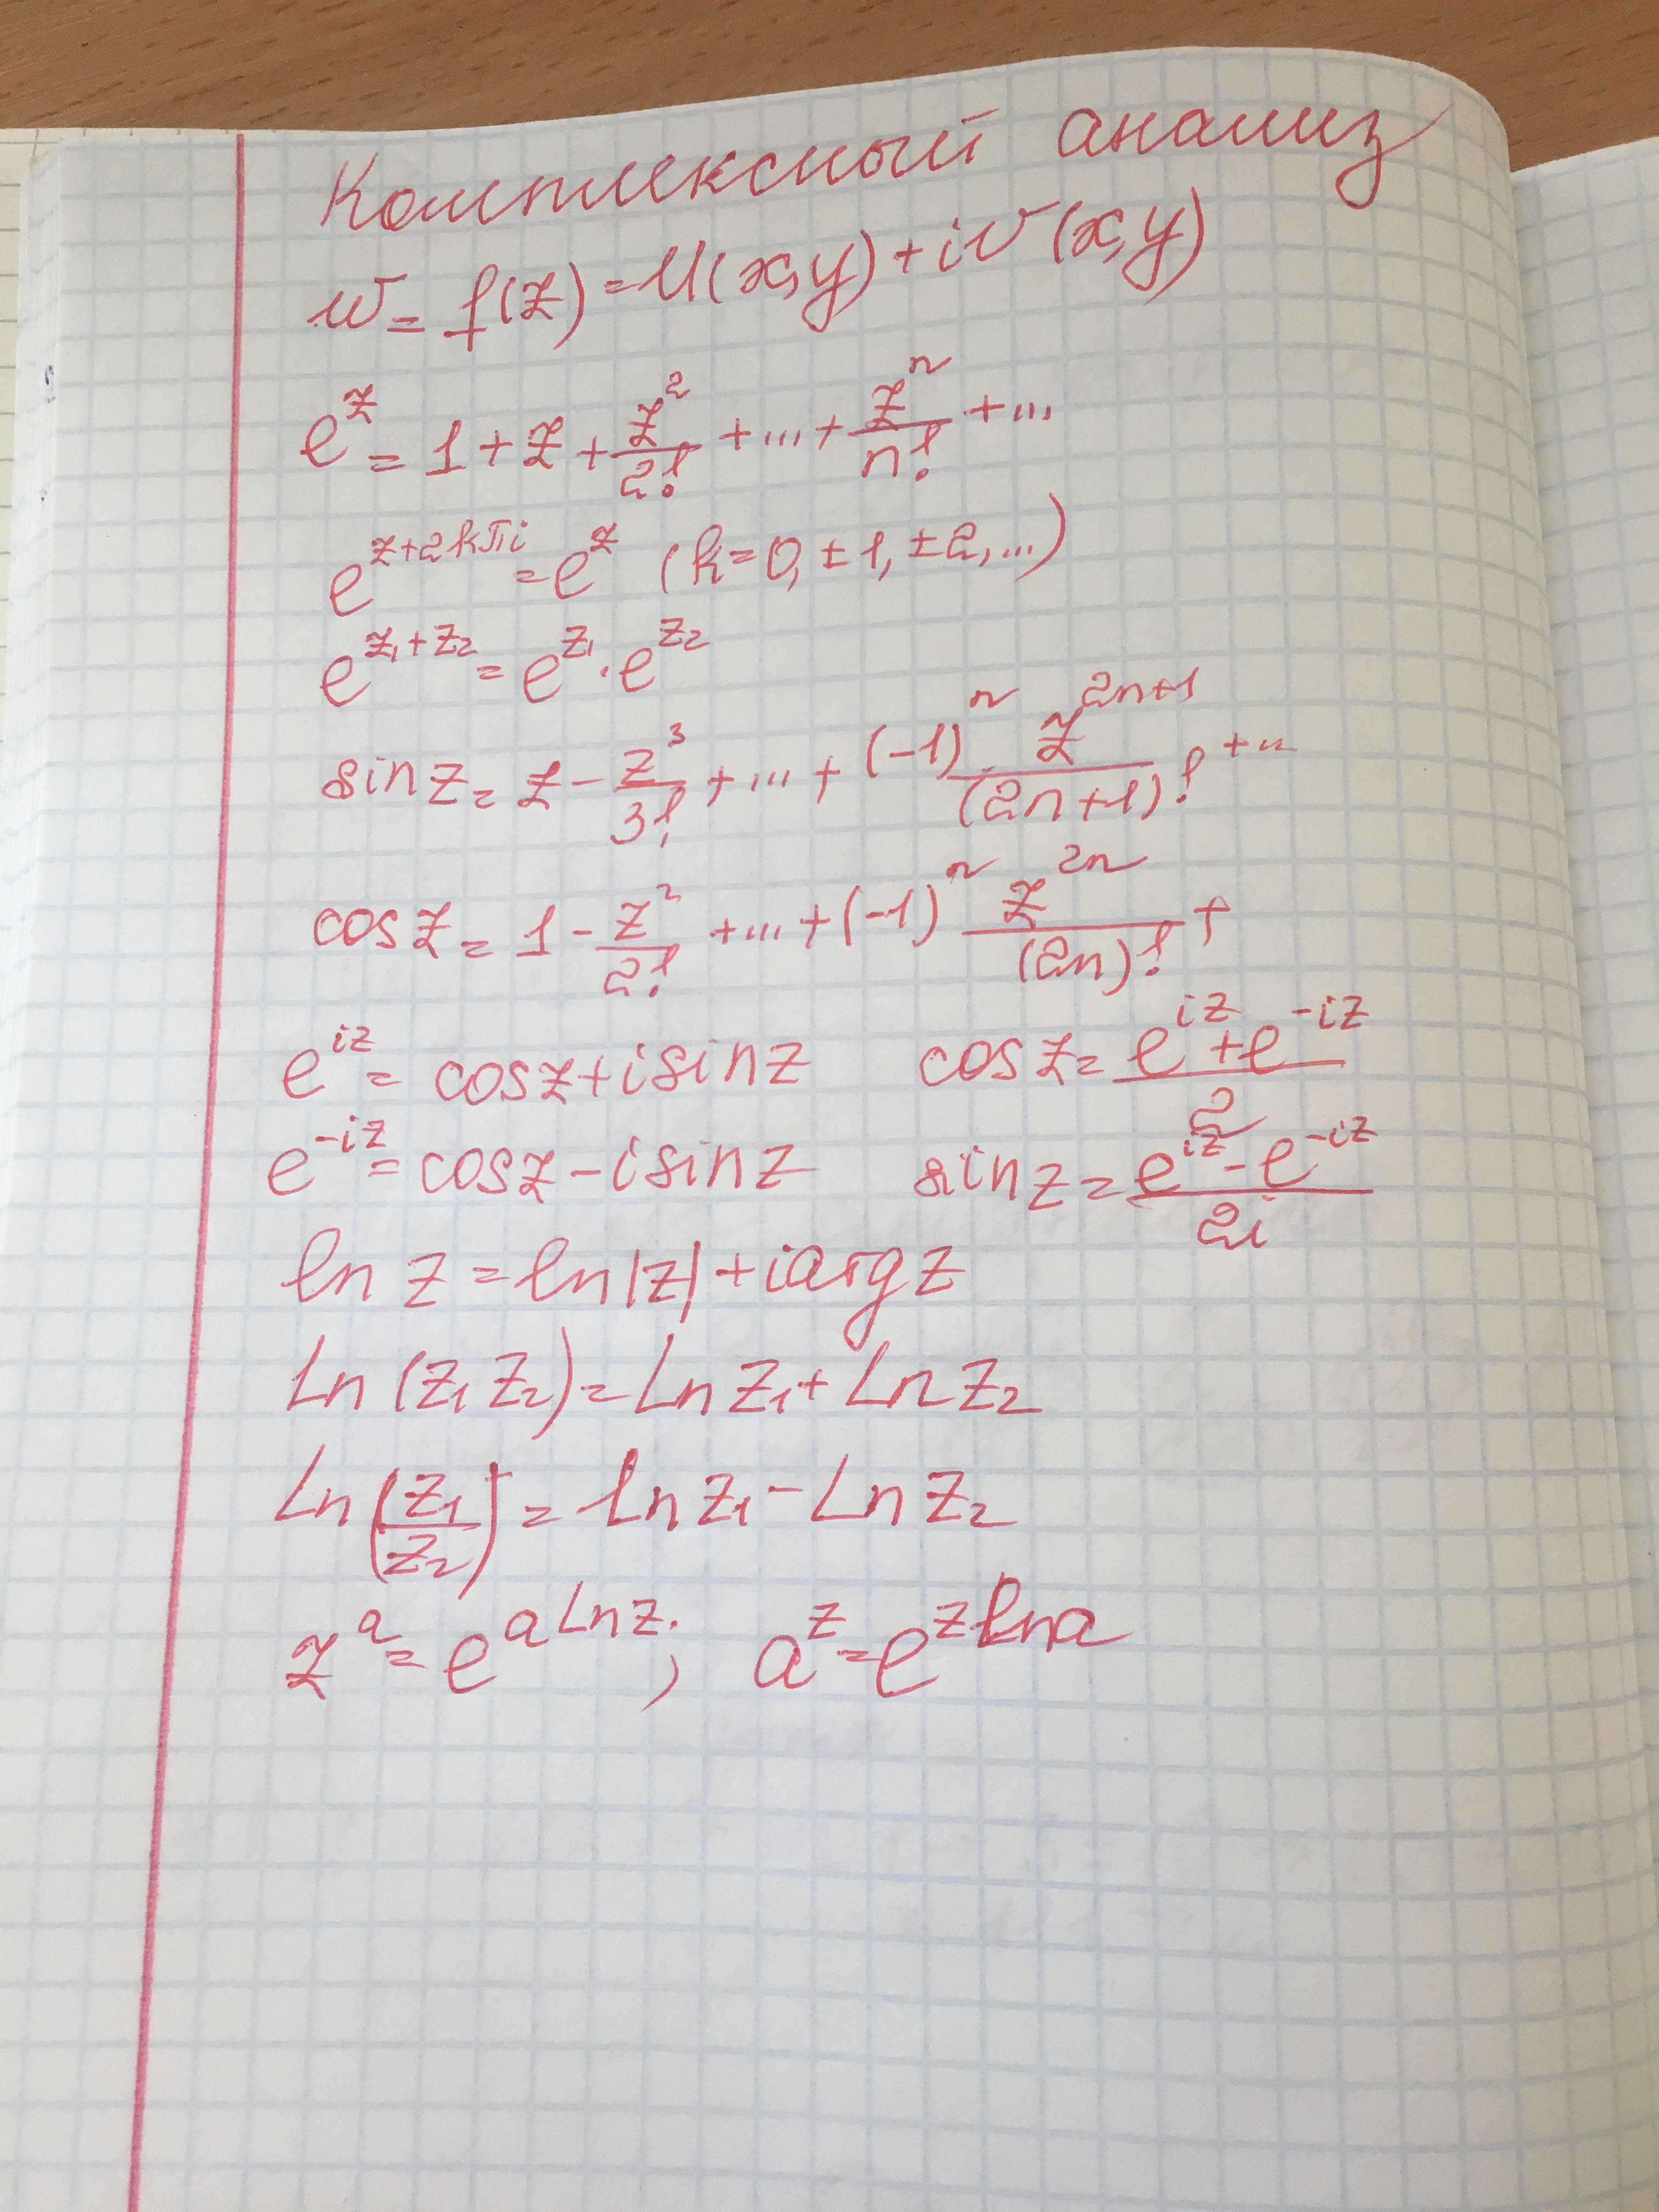 Комплексный анализ
w = f(z) = U(x,y) + iv(x,y)
e^z = 1 + z + z^2/2! + ... + z^n/n! + ...
e^(z+2kπi) = e^z (k=0, ±1, ±2, ...)
e^(z₁+z₂) = e^(z₁) · e^(z₂)
sin z = z - z^3/3! + ... + (-1)^n · z^(2n+1)/(2n+1)! + ...
cos z = 1 - z^2/2! + ... + (-1)^n z^(2n)/(2n)! +
e^(iz) = cos z + i sin z cos z = (e^(iz) + e^(-iz))/2
e^(-iz) = cos z - i sin z sin z = (e^(iz) - e^(-iz))/2i
ln z = ln|z| + i arg z
Ln (z₁ z₂) = Ln z₁ + Ln z₂
Ln (z₁/z₂) = ln z₁ - Ln z₂
z^a = e^(a Ln z); a^z = e^(z ln a)